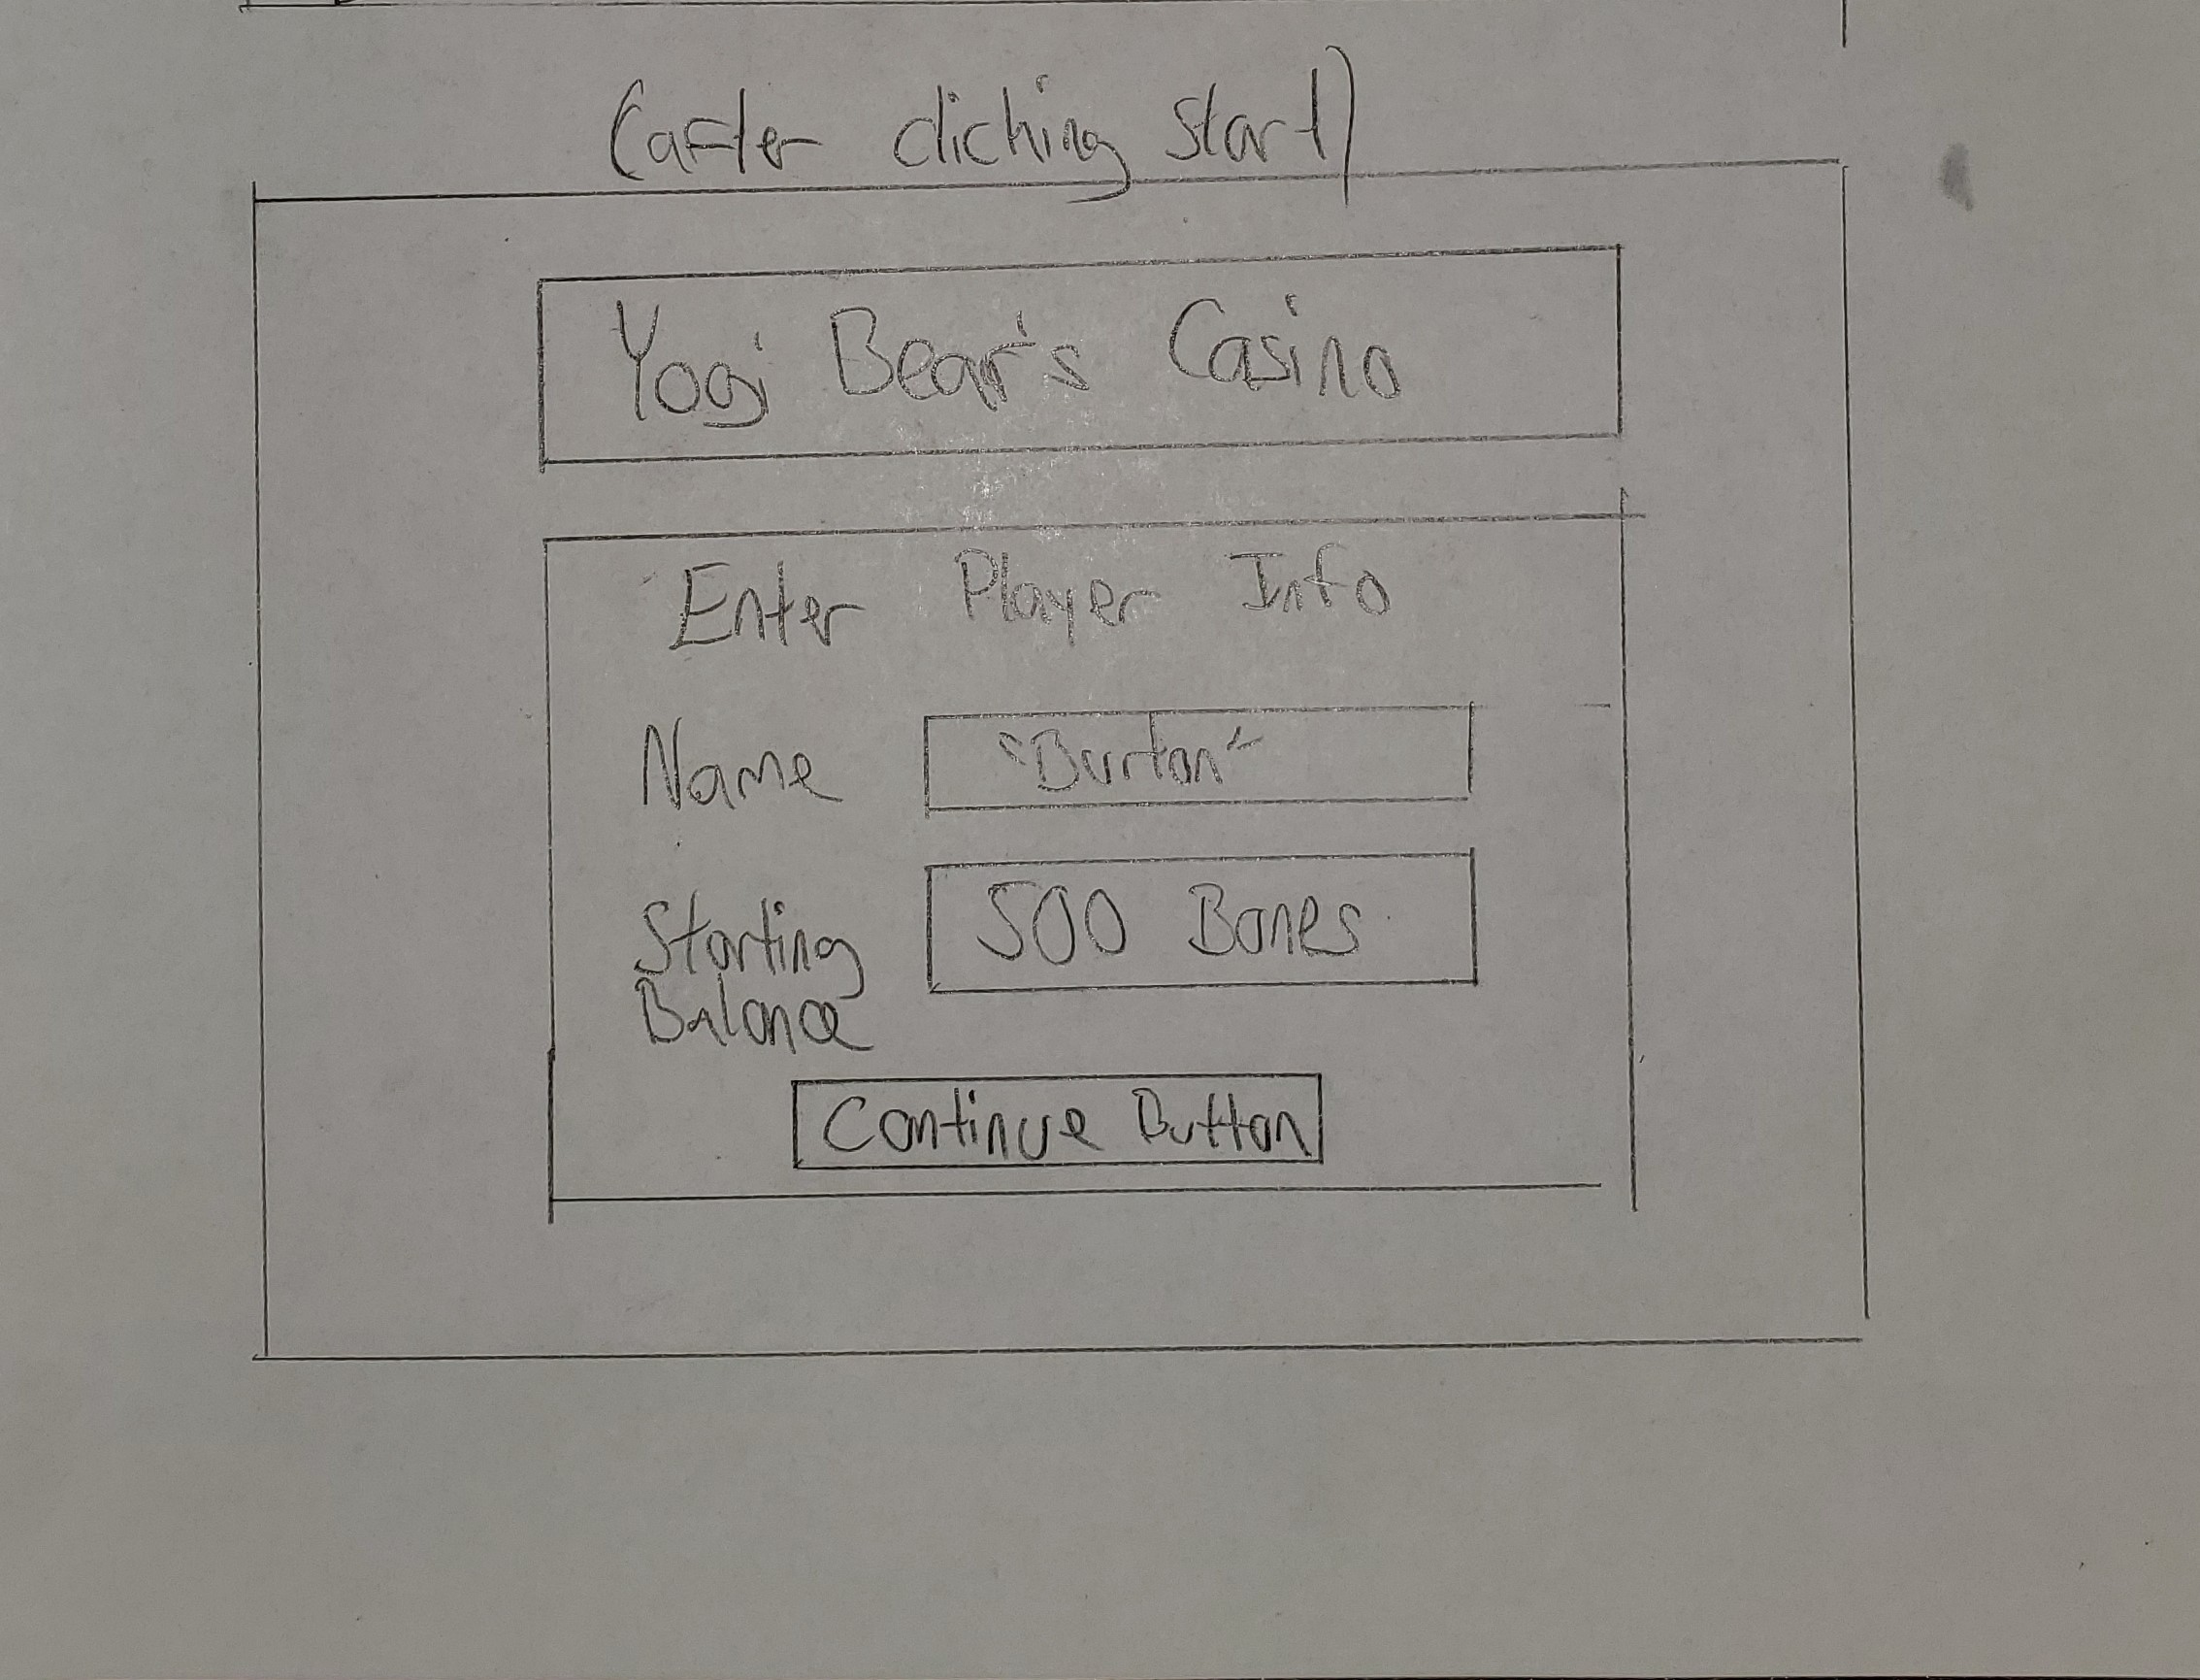 (after clicking start)
Yogi Bear's Casino
Enter Player Info
Name "Burton"
Starting 500 Bones
Balance
Continue Button